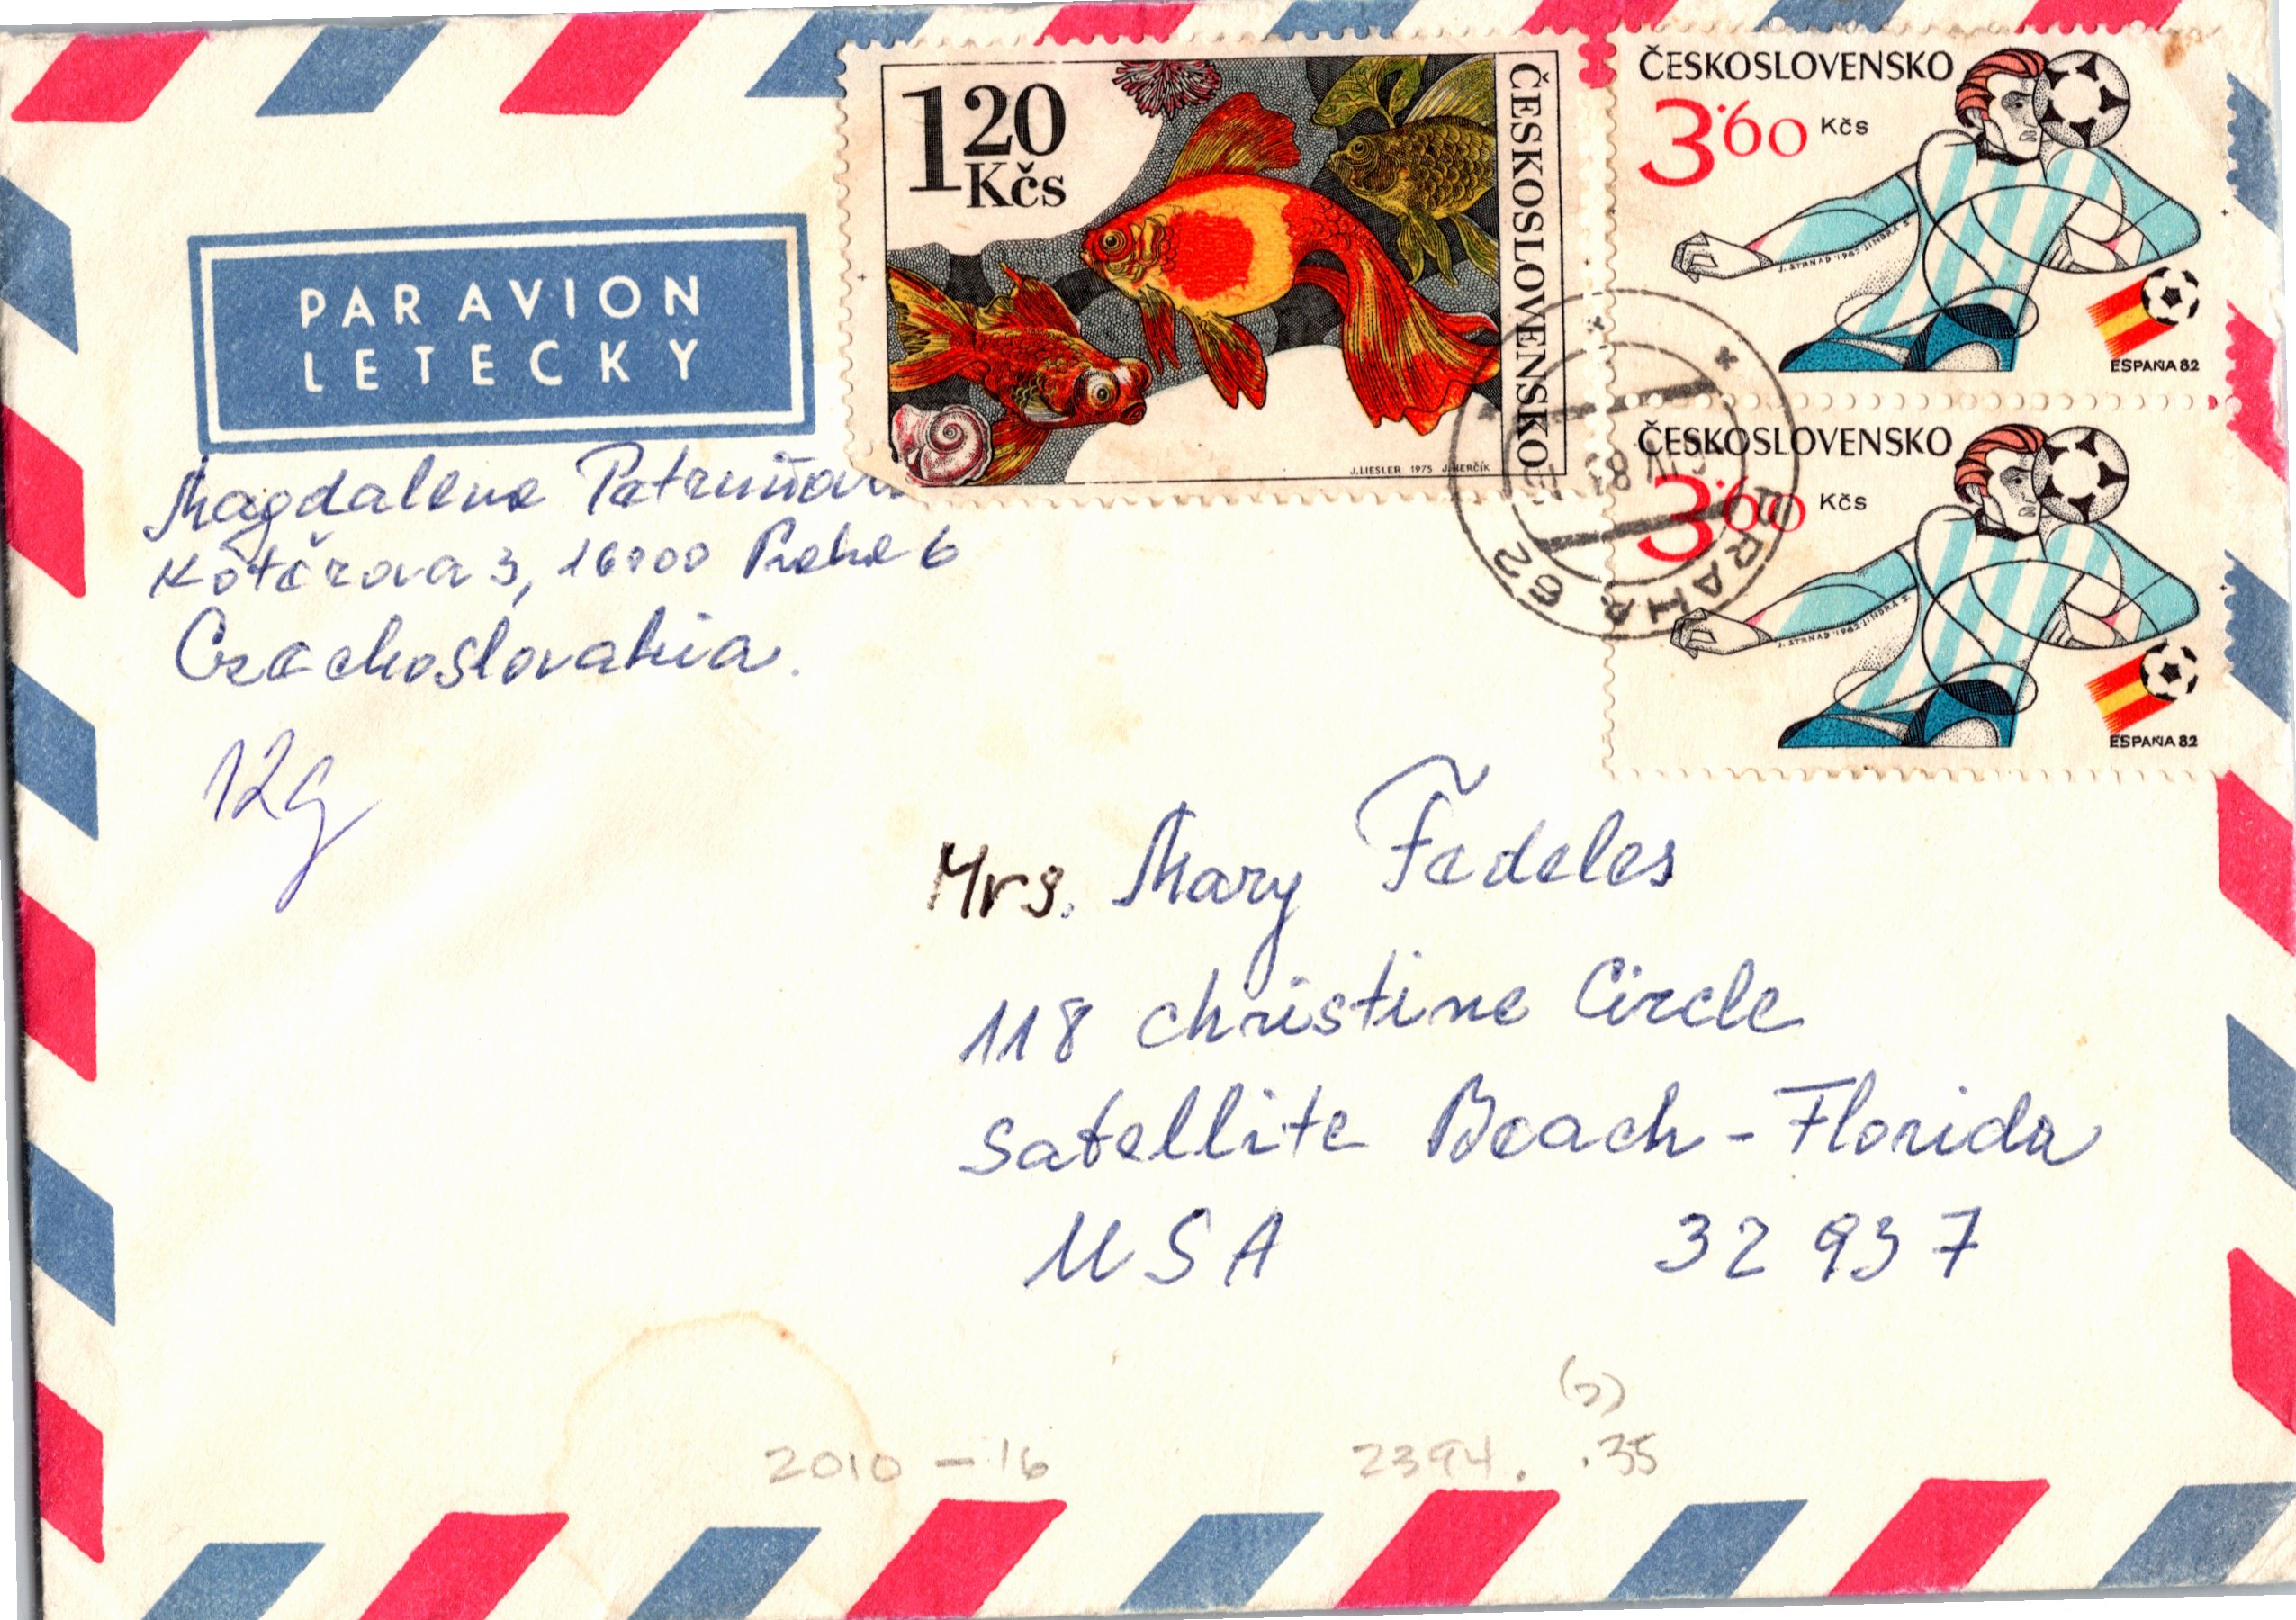 PAR AVION
LETECKY
1 20
Kčs
ČESKOSLOVENSKO
J. LIESLER 1975 J. HERČÍK
ČESKOSLOVENSKO
3.60 Kčs
J. STRNAD 1982
ESPAÑA 82
ČESKOSLOVENSKO
3.60 Kčs
J. STRNAD 1982
ESPAÑA 82
PRAHA 62
83
Magdalena
3, 16000 Praha 6
Czechoslovakia.
12g
Mrs. Mary Fedeles
118 Christine Circle
Satellite Beach - Florida
USA 32937
2010 - 16 2394. .35